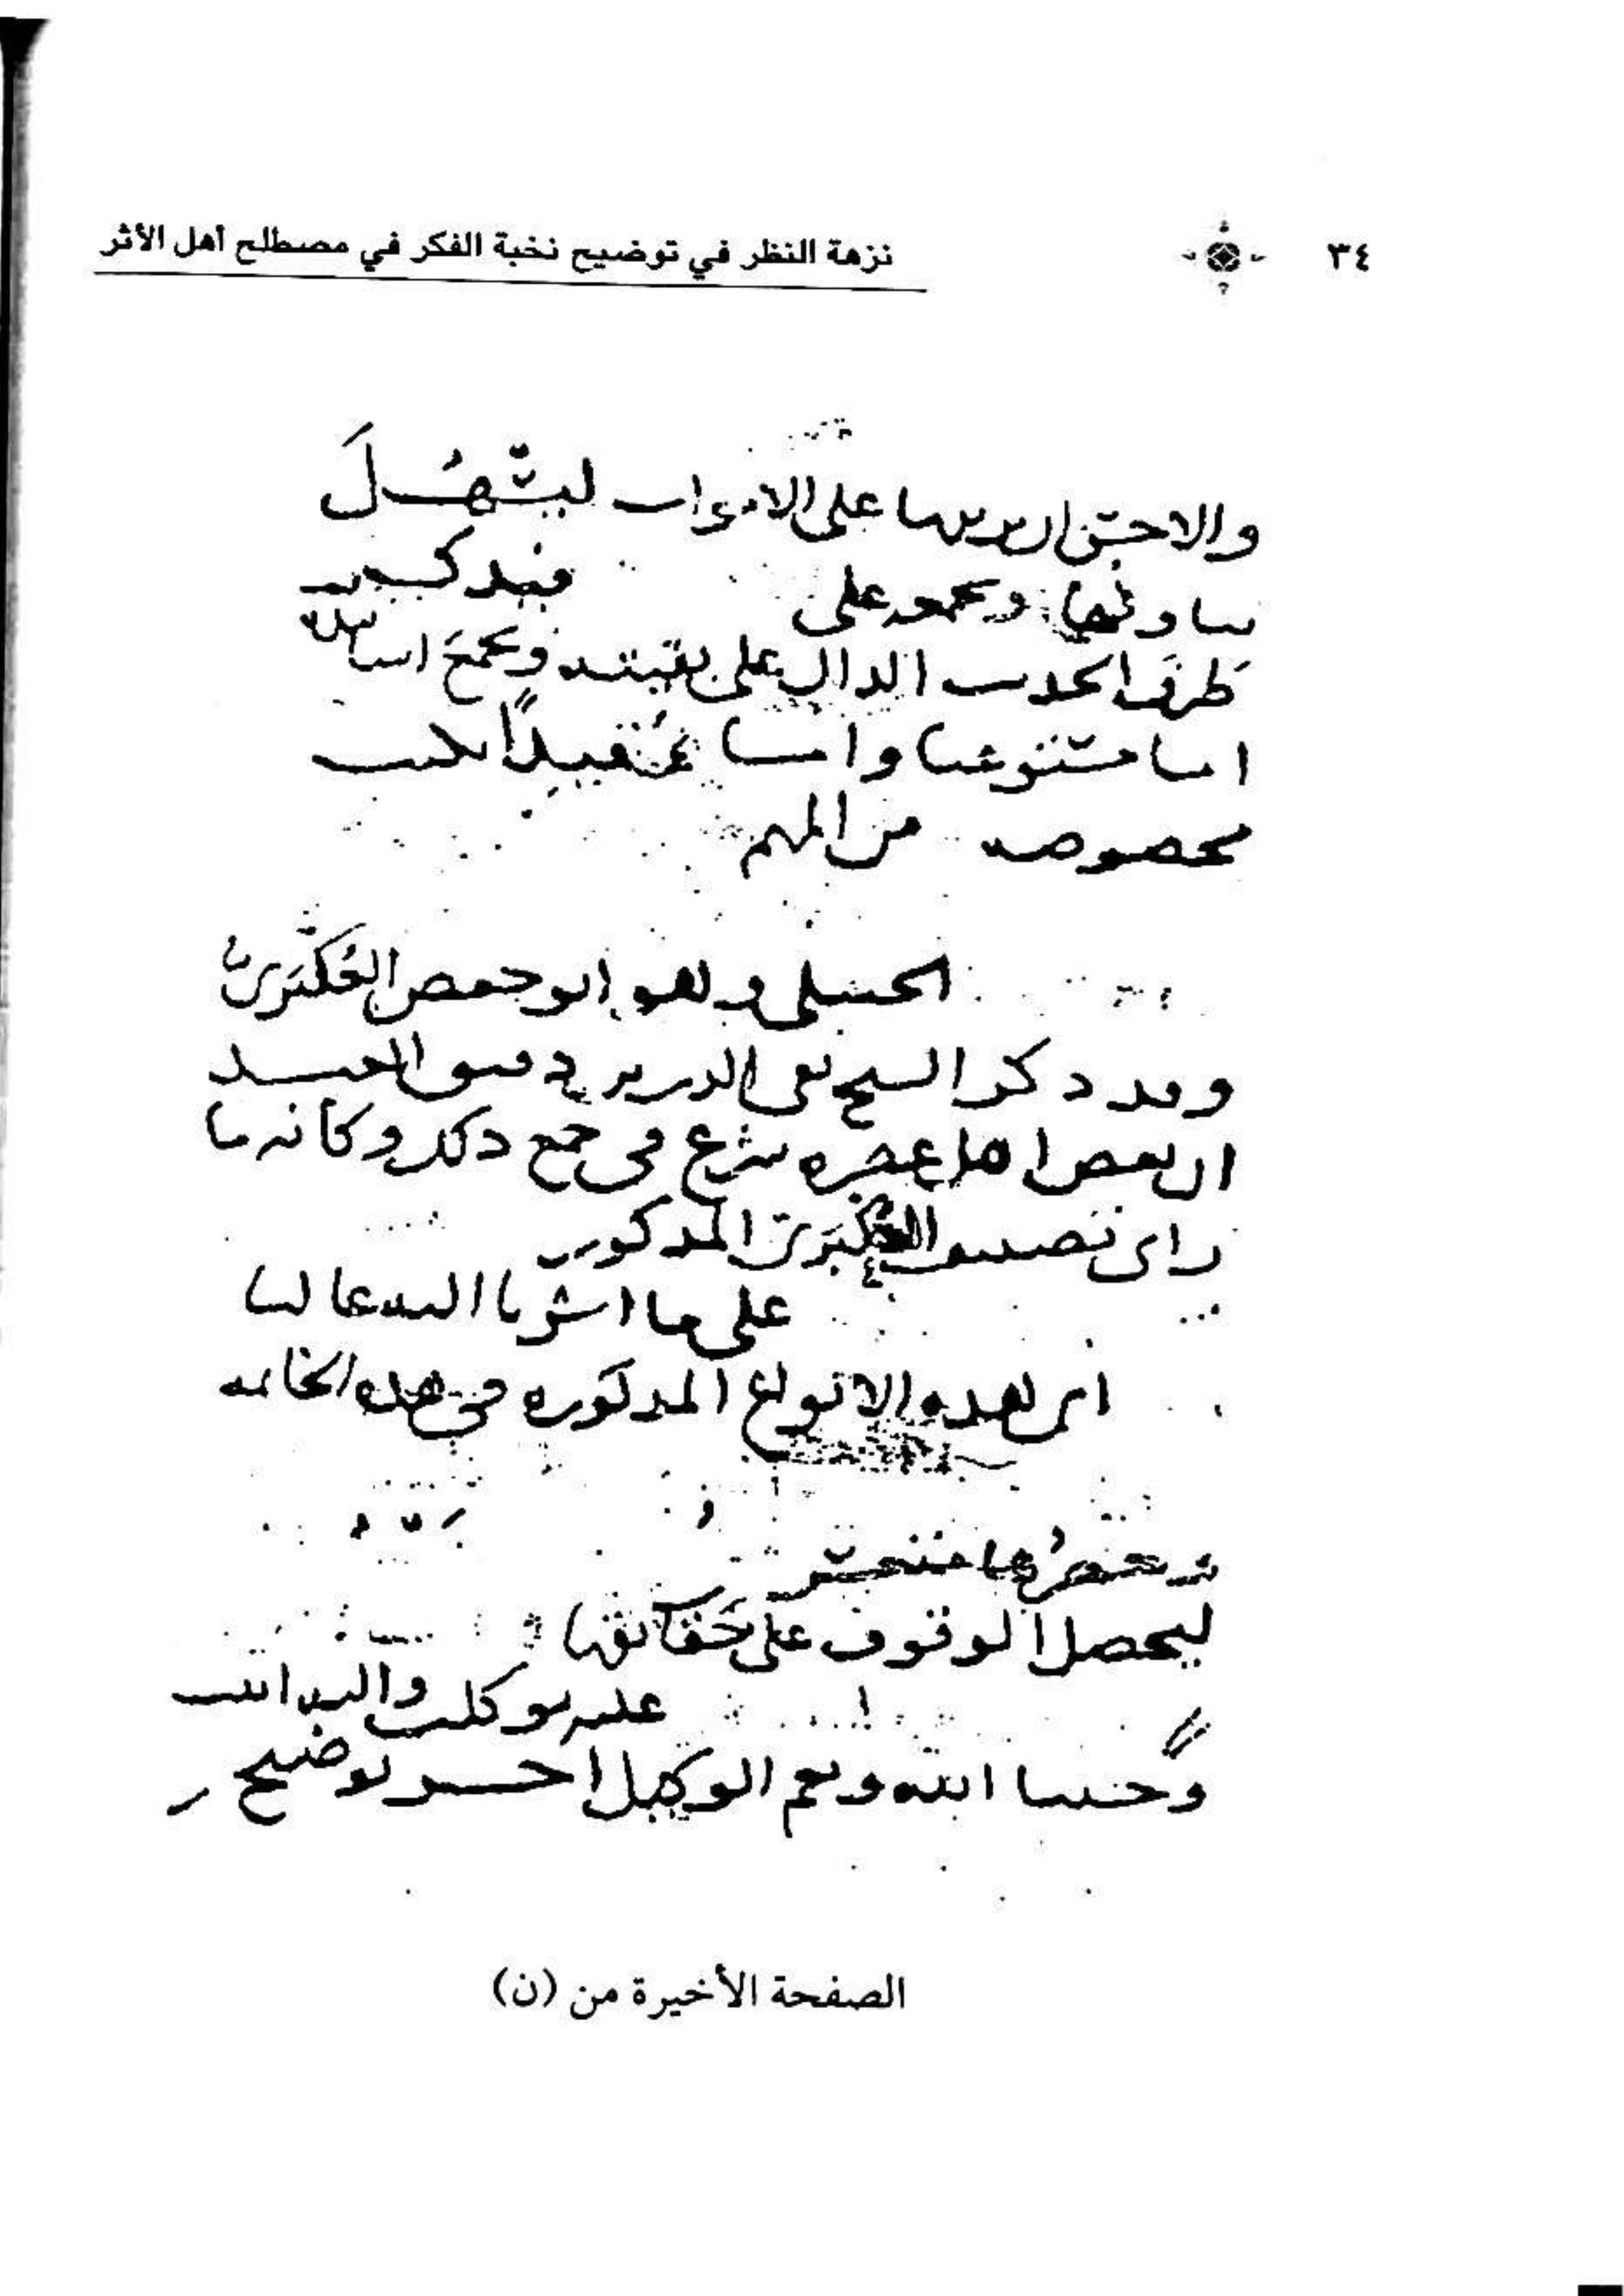 ٣٤
نزهة النظر في توضيح نخبة الفكر في مصطلح أهل الأثر
والاحسن ان يرتبها على الابواب ليسْهُلَ
تناولها ويجمعه على فيذكر
طرف الحديث الدال على بقيته ويجمع اسانيده
اما مستوعبا واما مُتقيدًا بكتب
مخصوصه من المهم
الحنبلى وهو ابو حفص العُكْبَرى
وقد ذكر الشيخ تقى الدين بن دقيق العيد
ان بعض اهل عصره شرع فى جمع ذلك وكانه ما
راى تصنيف العُكْبَرى المذكور
على ما اشرنا اليه غالبا
اى هذه الانواع المذكوره فى هذه الخاتمه
وحصرُها متعسر
ليحصل الوقوف على حَقَائقها
عليه توكلت واليه انيب
وحسبنا الله ونعم الوكيل
الصفحة الأخيرة من (ن)